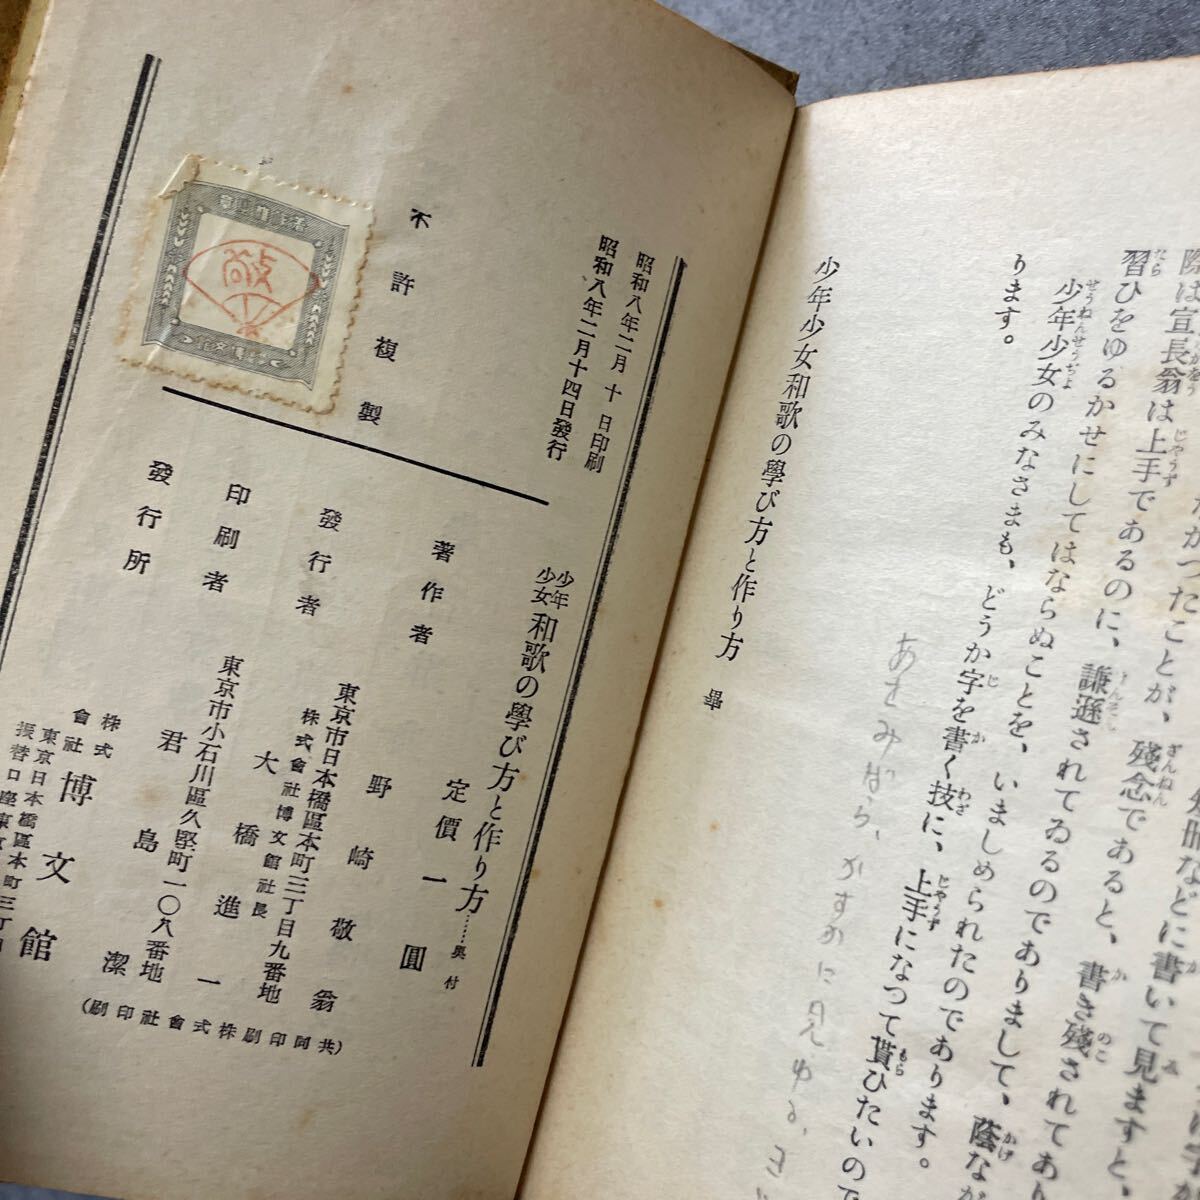 際は宣長翁は上手であるのに、謙遜されてゐるのでありまして、蔭なが
習ひをゆるかせにしてはならぬことを、いましめられたのであります。
少年少女のみなさまも、どうか字を書く技に、上手になつて貰ひたいので
ります。
あさみどり、かすかに見ゆる、
少年少女和歌の學び方と作り方 畢
昭和八年二月十日印刷
昭和八年二月十四日發行
不許複製
少年少女 和歌の學び方と作り方……奥付
定價一圓
著作者 野崎敬翁
東京市日本橋區本町三丁目九番地
株式會社博文館社長
發行者 大橋進一
東京市小石川區久堅町一〇八番地
印刷者 君島潔
(共同印刷株式會社印刷)
發行所 株式會社 博文館
東京日本橋區本町三丁目
振替口座東京